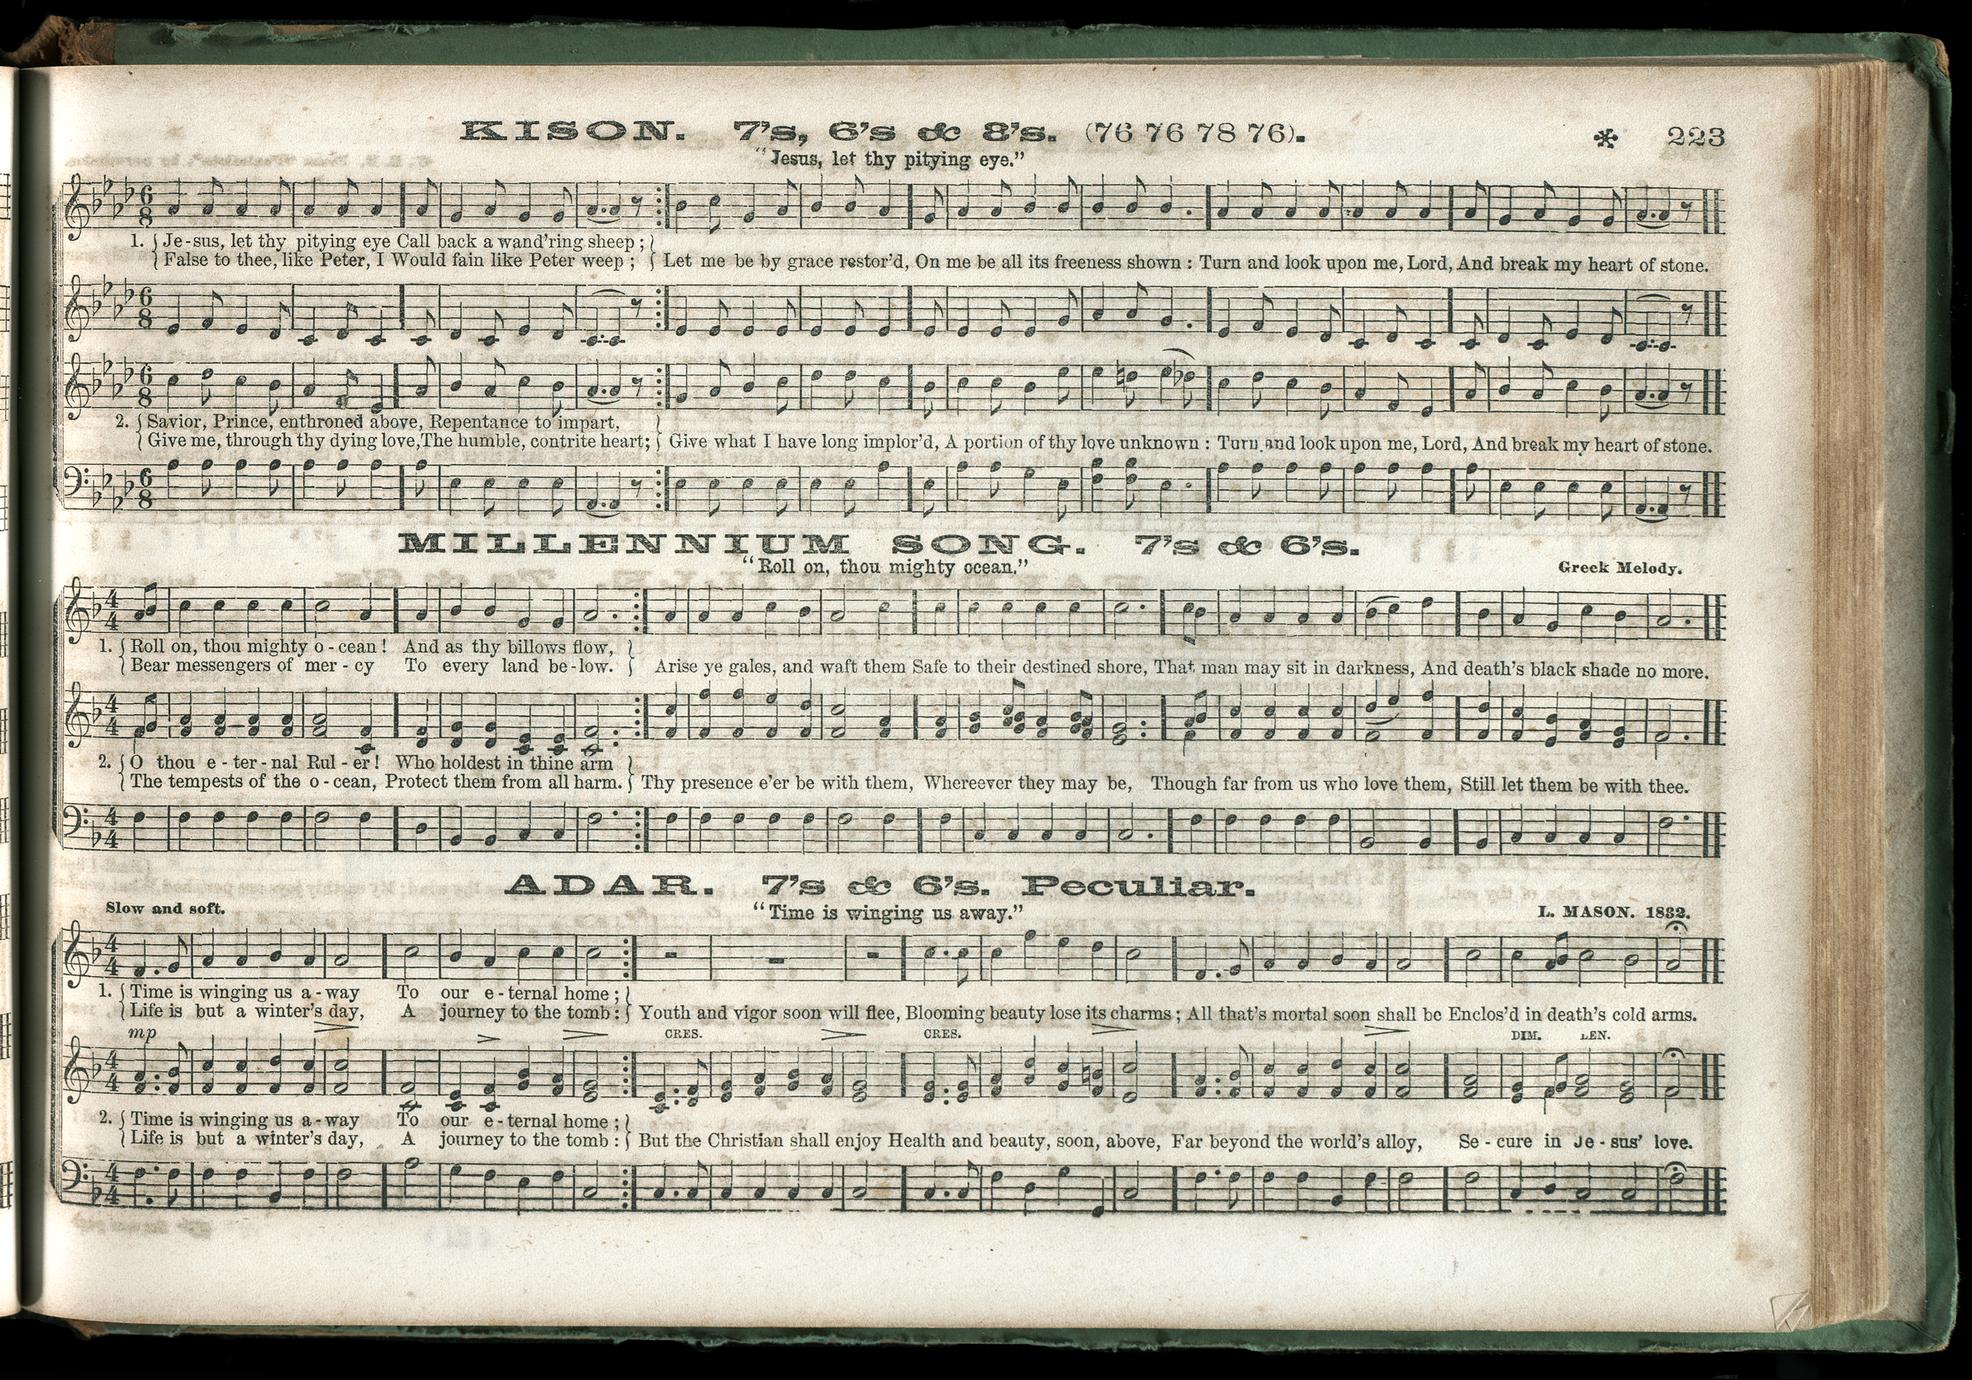 KISON. 7's, 6's & 8's. (76 76 78 76). * 223
"Jesus, let thy pitying eye."
1. { Je-sus, let thy pitying eye Call back a wand'ring sheep; }
{ False to thee, like Peter, I Would fain like Peter weep; } Let me be by grace restor'd, On me be all its freeness shown: Turn and look upon me, Lord, And break my heart of stone.
2. { Savior, Prince, enthroned above, Repentance to impart, }
{ Give me, through thy dying love, The humble, contrite heart; } Give what I have long implor'd, A portion of thy love unknown: Turn and look upon me, Lord, And break my heart of stone.
MILLENNIUM SONG. 7's & 6's.
"Roll on, thou mighty ocean." Greek Melody.
1. { Roll on, thou mighty o-cean! And as thy billows flow, }
{ Bear messengers of mer-cy To every land be-low. } Arise ye gales, and waft them Safe to their destined shore, That man may sit in darkness, And death's black shade no more.
2. { O thou e-ter-nal Rul-er! Who holdest in thine arm }
{ The tempests of the o-cean, Protect them from all harm. } Thy presence e'er be with them, Whereever they may be, Though far from us who love them, Still let them be with thee.
ADAR. 7's & 6's. Peculiar.
Slow and soft. "Time is winging us away." L. MASON. 1832.
1. { Time is winging us a-way To our e-ternal home; }
{ Life is but a winter's day, A journey to the tomb: } Youth and vigor soon will flee, Blooming beauty lose its charms; All that's mortal soon shall be Enclos'd in death's cold arms.
mp CRES. CRES. DIM. LEN.
2. { Time is winging us a-way To our e-ternal home; }
{ Life is but a winter's day, A journey to the tomb: } But the Christian shall enjoy Health and beauty, soon, above, Far beyond the world's alloy, Se-cure in Je-sus' love.